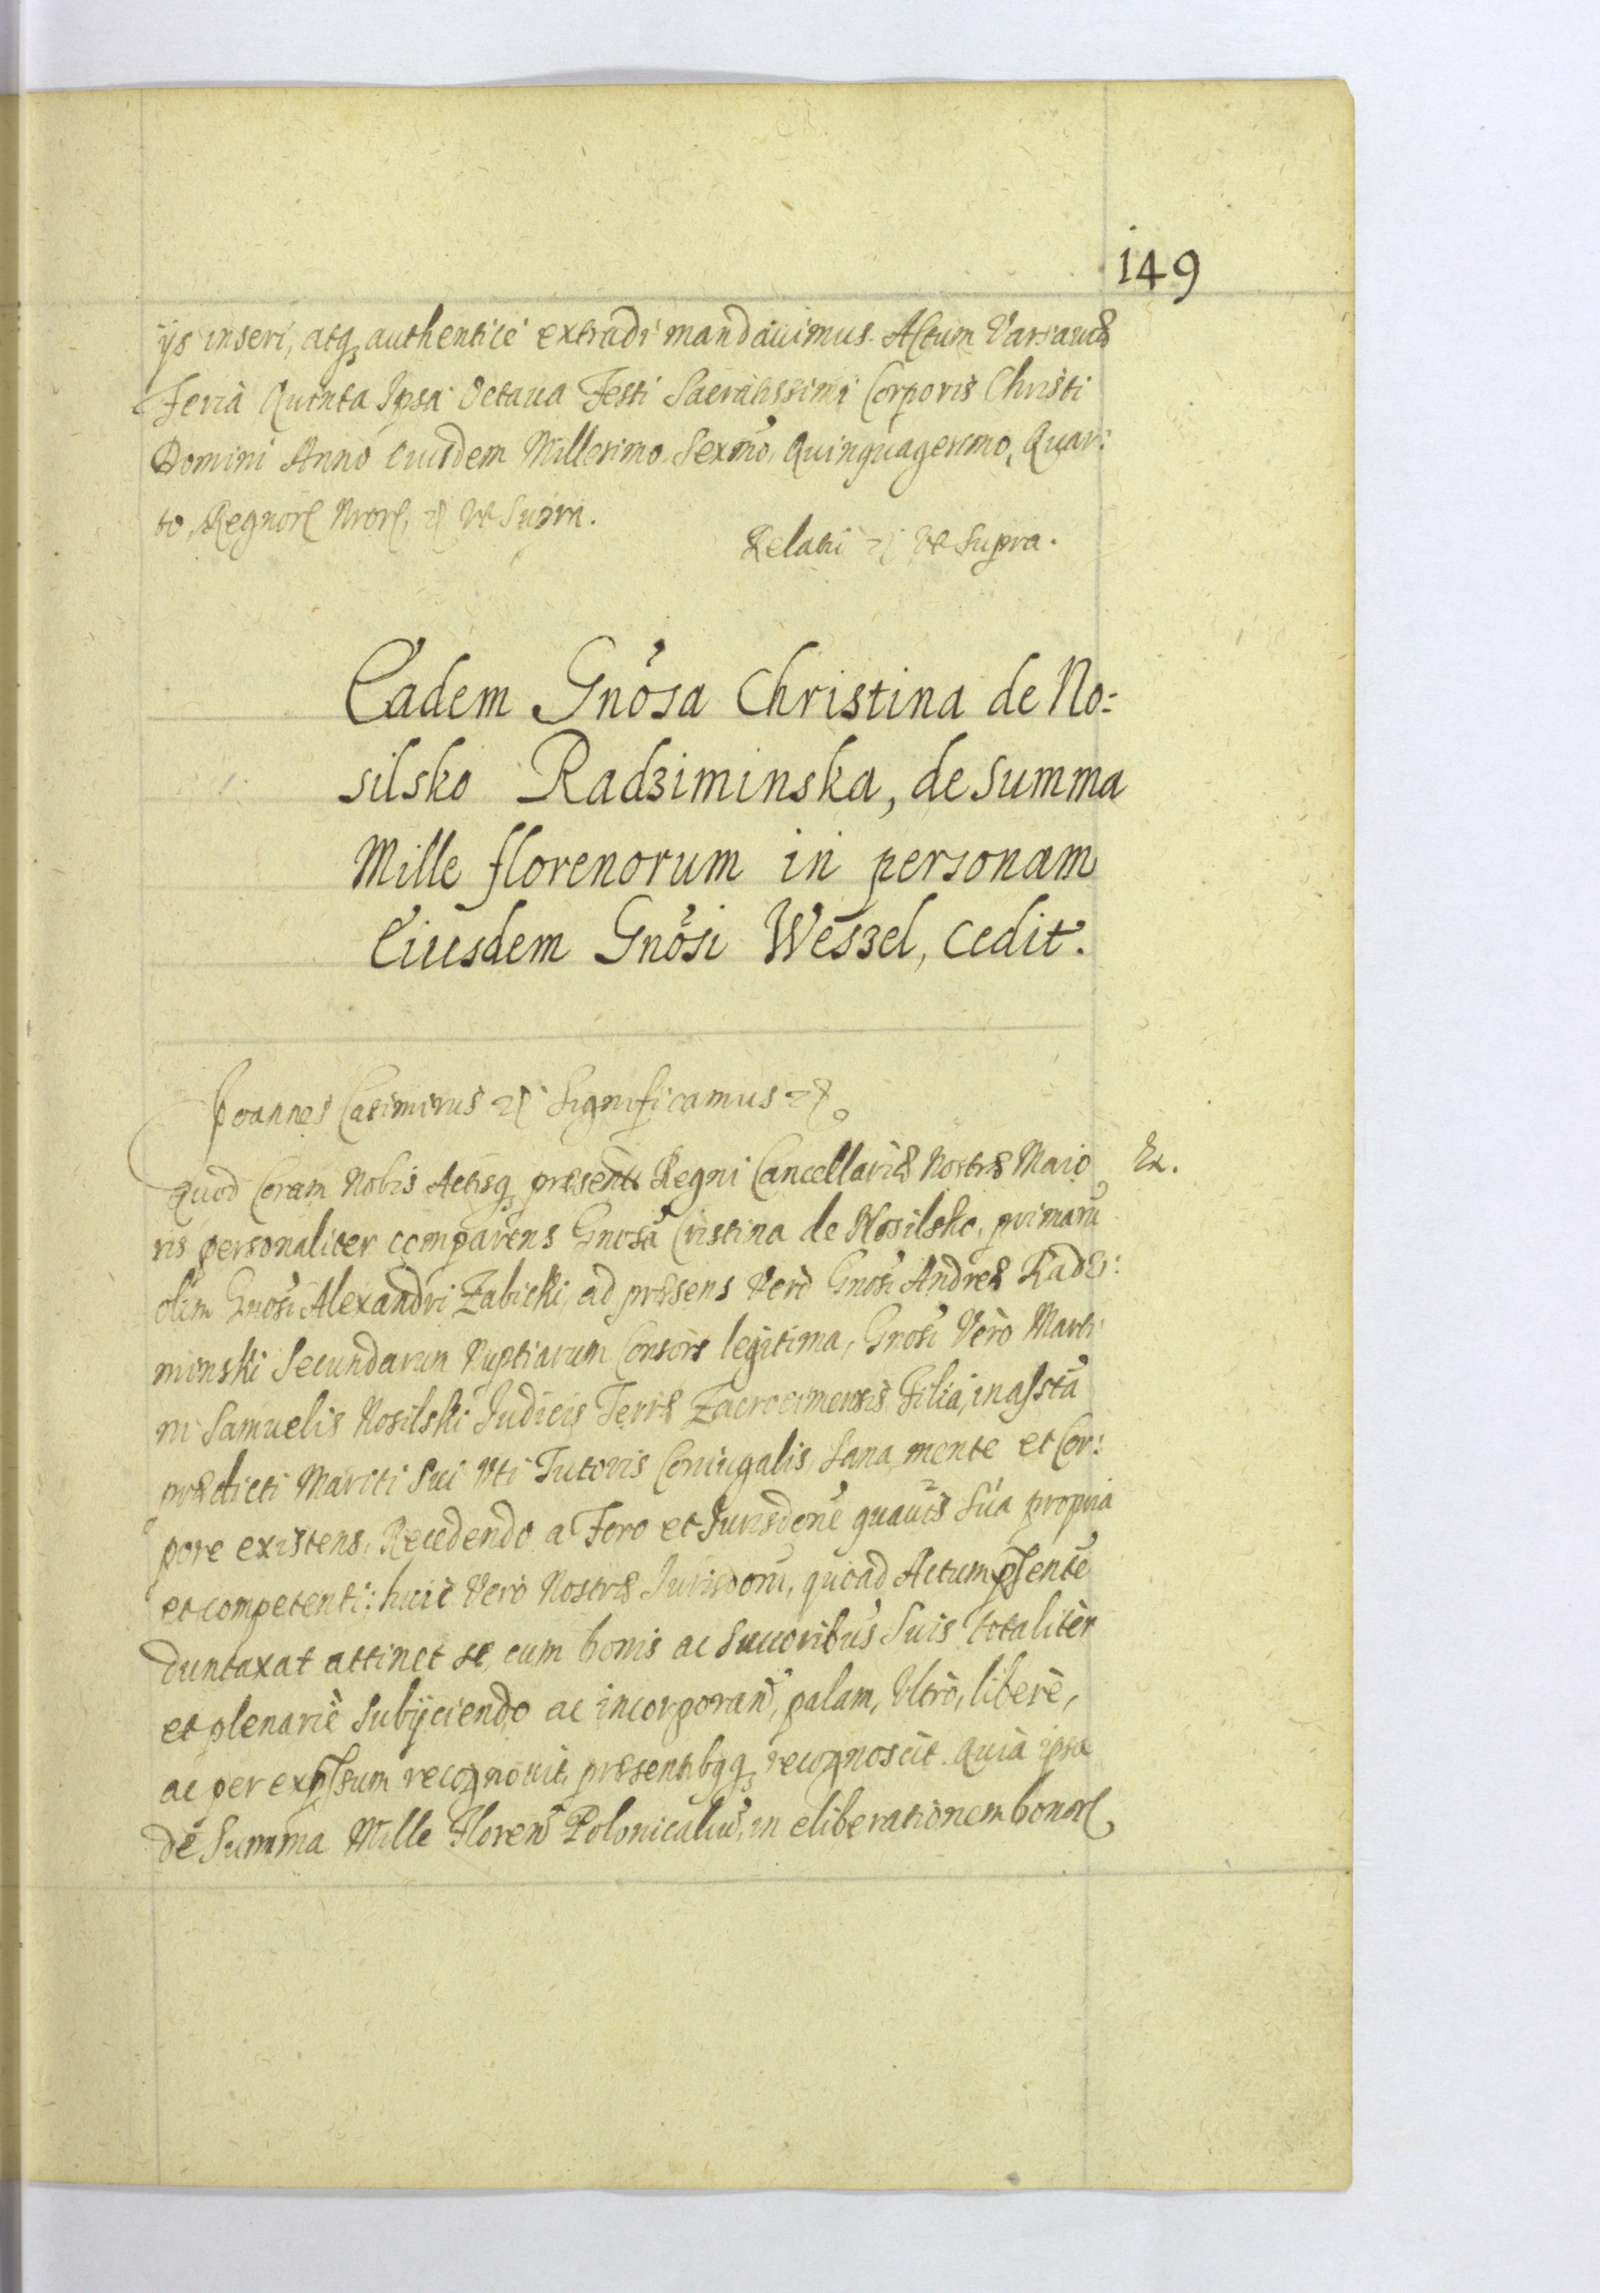 149
ijs inseri, atq authenticè extradi mandauimus. Actum Varsauiæ
Feria Quinta Ipsa Octaua Festi Sacratissimi Corporis Christi
Domini Anno Eiusdem Millesimo Sexmo, Quinquagesimo, Quar:
to, Regnor Nror, Vt Supra.
Relatio Vt Supra.
Eadem Gnosa Christina de No:
silsko Radziminska, de Summa
Mille florenorum in personam
Eiusdem Gnosi Weszel, cedit.
Joannes Casimirus Significamus
Ex.
Quod Coram Nobis Actisq præsenti Regni Cancellariæ Nostræ Maio
ris personaliter comparens Gnosa Cristina de Nosilsko, primarũ
olim Gnosi Alexandri Zabicki, ad præsens Verò Gnosi Andreæ Radzi:
minski Secundarum Nuptiarum Consors legitima, Gnosi Verò Marti
ni Samuelis Nosilski Iudicis Terræ Zacrocimensis Filia, in assta
prædicti Mariti Sui Vti Tutoris Coniugalis, Sana mente et Cor:
pore existens, Recedendo a Foro et Jurisdone quauis Sua propria
et competenti: huic Verò Nostræ Jurisdoni, quoad Actum psentẽ
duntaxat attinet se, cum bonis ac Succoribus Suis totalitèr
et plenariè Subijciendo ac incorporan, palam, Vltrò, liberè,
ac per expssum recognouit, præsentibqq recognoscit. Quià ipsa
de Summa Mille Floren Polonicaliũ, in eliberationem bonor